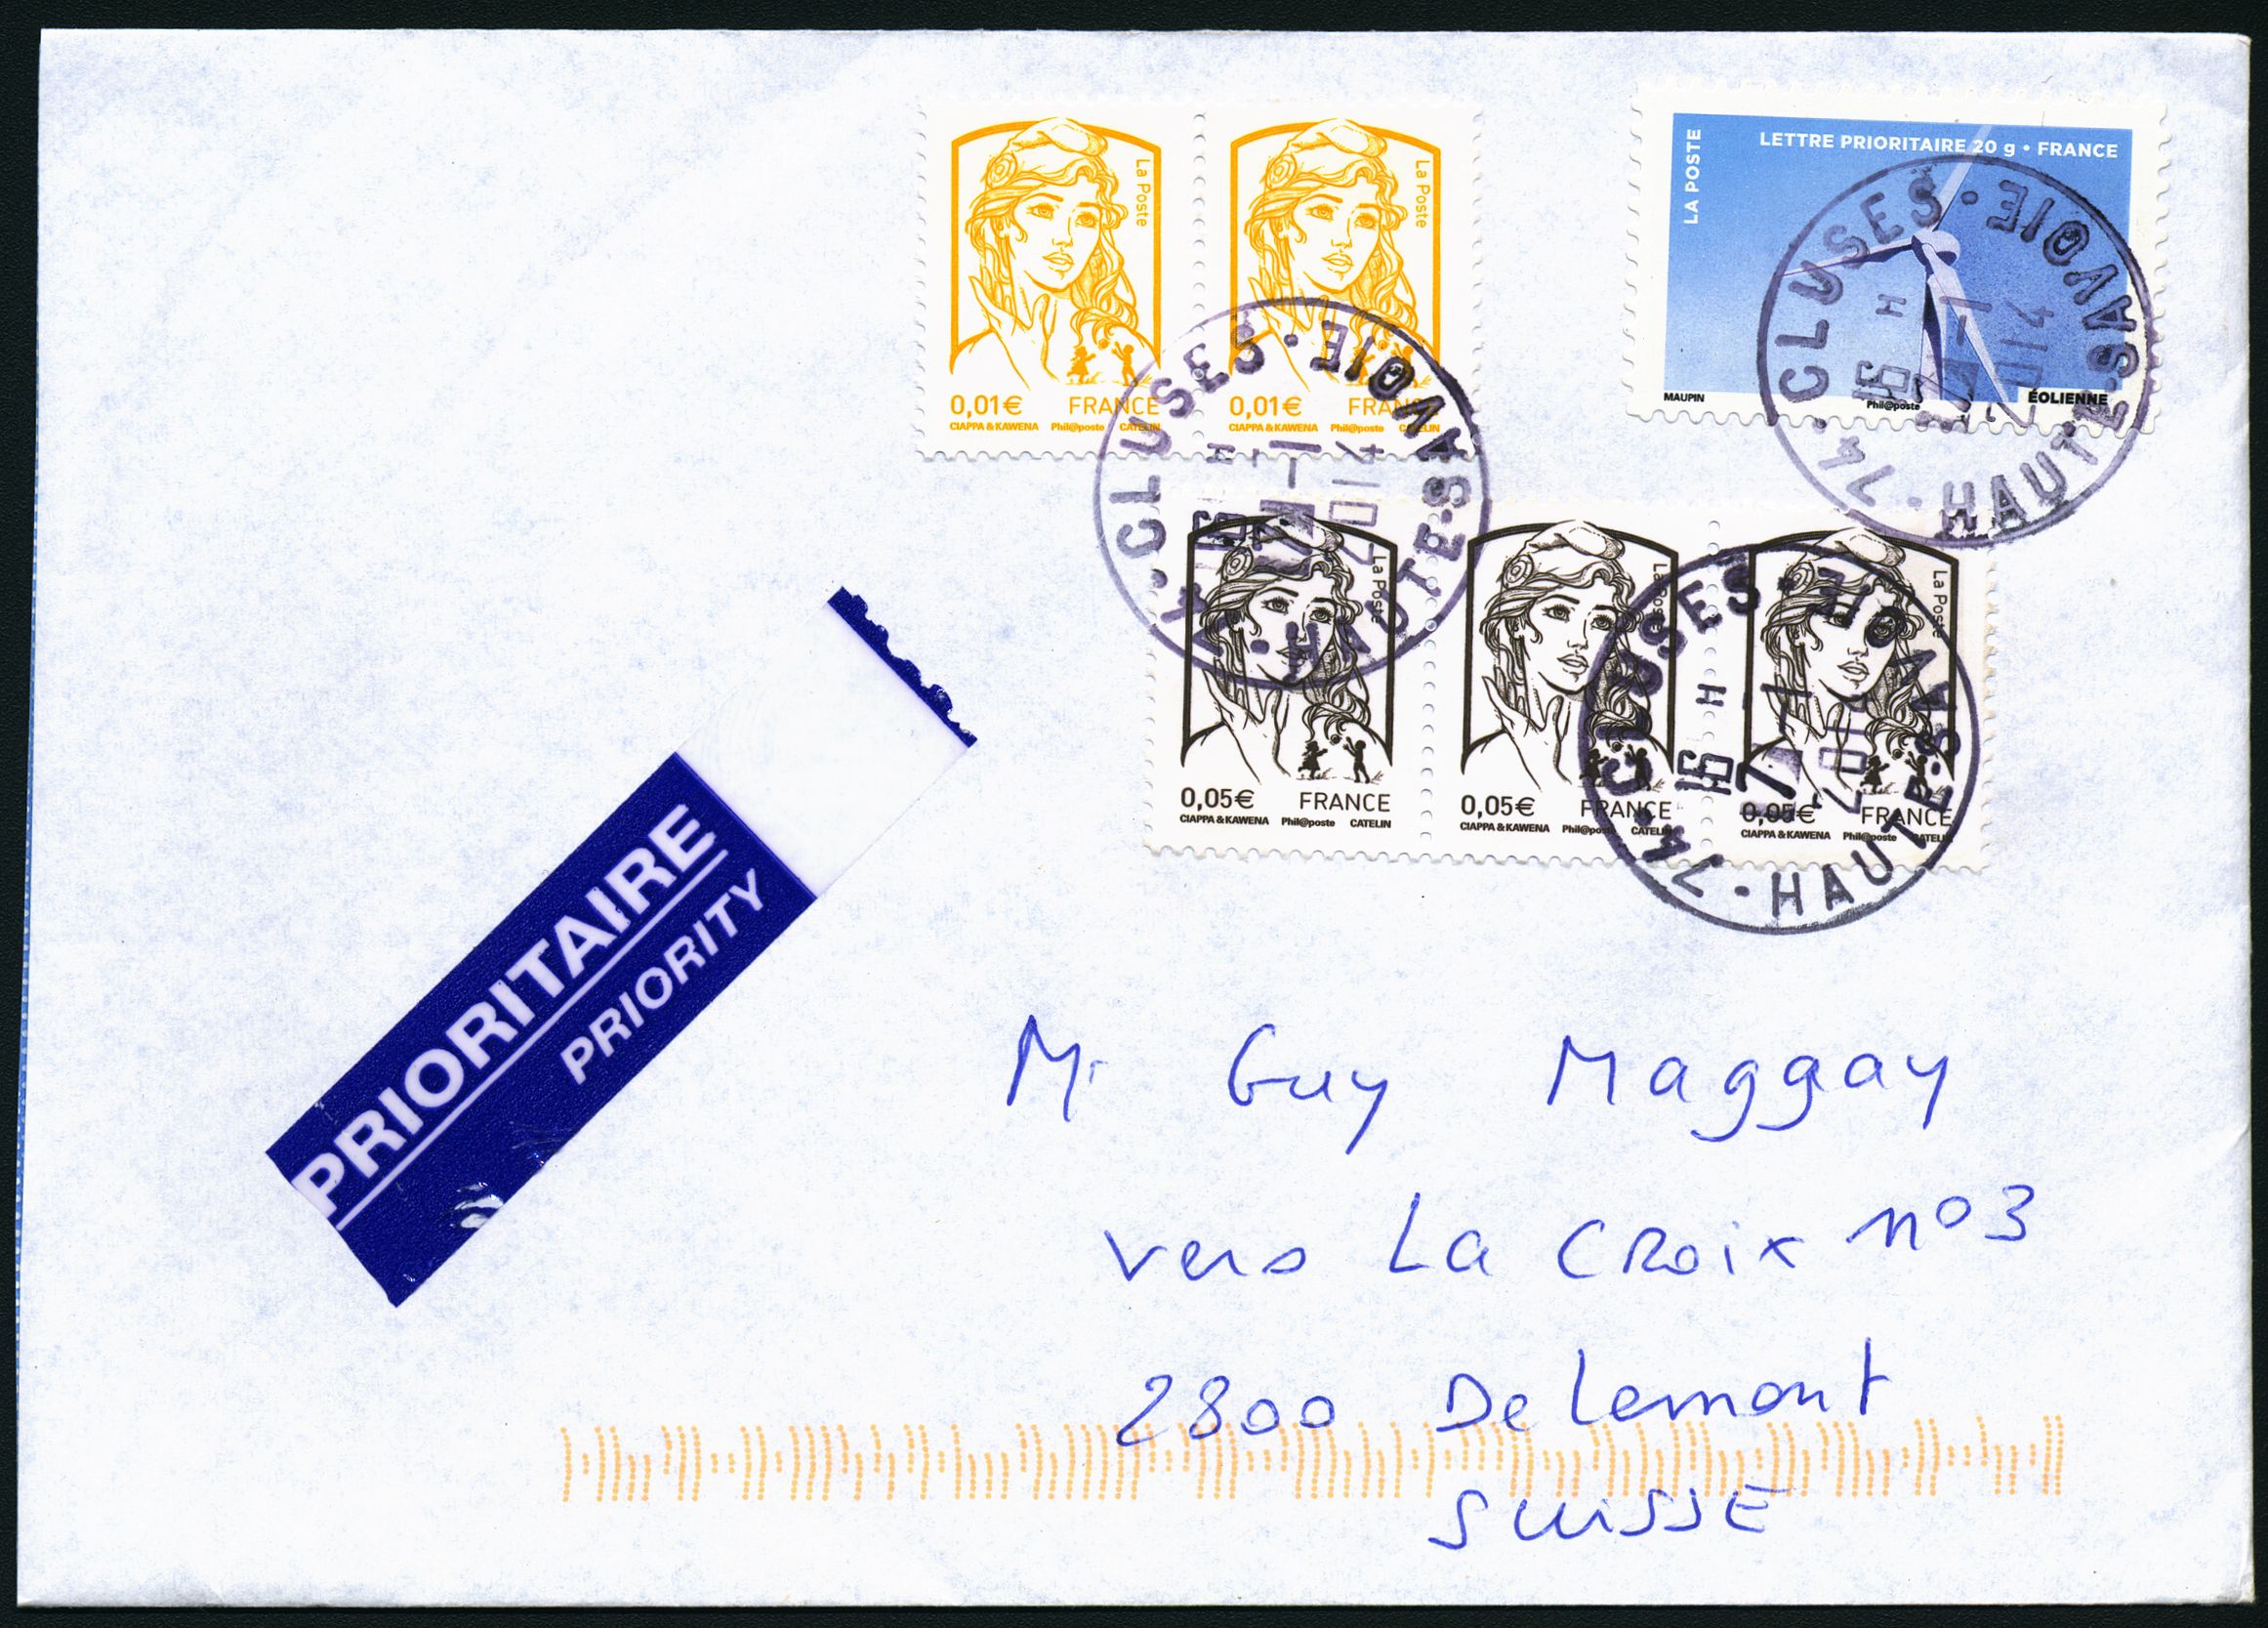 La Poste
0,01€ FRANCE
CIAPPA & KAWENA Phil@poste CATELIN
La Poste
0,01€ FRANCE
CIAPPA & KAWENA Phil@poste CATELIN
LA POSTE
LETTRE PRIORITAIRE 20 g • FRANCE
MAUPIN Phil@poste ÉOLIENNE
74 • CLUSES • HAUTE-SAVOIE
16 H
2014
74 • CLUSES • HAUTE-SAVOIE
16 H
2014
La Poste
0,05€ FRANCE
CIAPPA & KAWENA Phil@poste CATELIN
La Poste
0,05€ FRANCE
CIAPPA & KAWENA Phil@poste CATELIN
La Poste
0,05€ FRANCE
CIAPPA & KAWENA Phil@poste CATELIN
74 • CLUSES • HAUTE-SAVOIE
16 H
2014
PRIORITAIRE
PRIORITY
Mr Guy Maggay
vers La CRoix n°3
2800 DeLemont
SUISSE